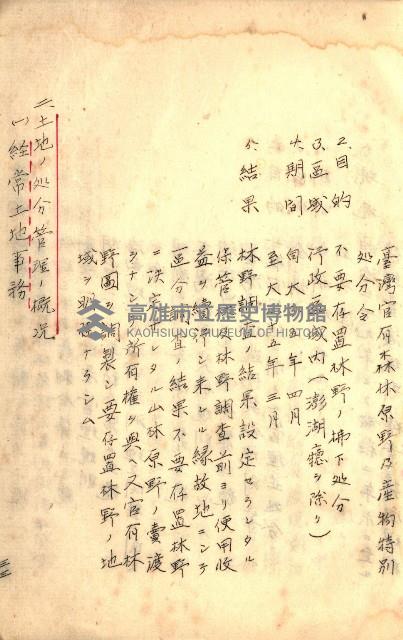 臺灣官有森林原野及産物特別
処分令
2、目的 不要存置林野ノ拂下処分
3、區域 行政區域内(澎湖廳ヲ除ク)
4、期間 自大正 年四月
至大正十五年三月
5、結果 林野調査ノ結果設定セラレタル
保管林及林野調査前ヨリ使用收
益ヲ續行シ来レル縁故地ニシテ
區分調査ノ結果不要存置林野
ニ決定シタル山林原野ノ賣渡
ヲナシ所有權ヲ與ヘ又官有林
野圖ヲ調製シ要存置林野ノ地
域ヲ明確ナラシム
二、土地ノ処分管理ノ概況
(一)経常土地事務
高雄市立歷史博物館
KAOHSIUNG MUSEUM OF HISTORY